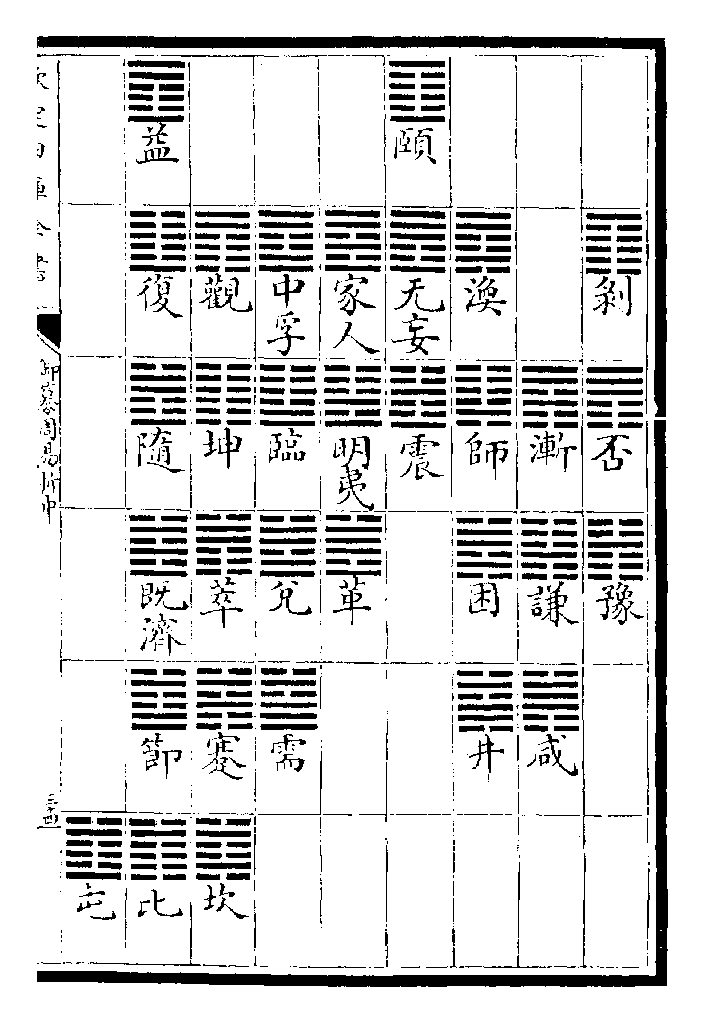 剝
否
豫
漸
謙
咸
渙
師
困
井
頤
无妄
震
家人
明夷
革
中孚
臨
兌
需
觀
坤
萃
蹇
坎
益
復
隨
既濟
節
比
屯
欽定四庫全書
御纂周易折中